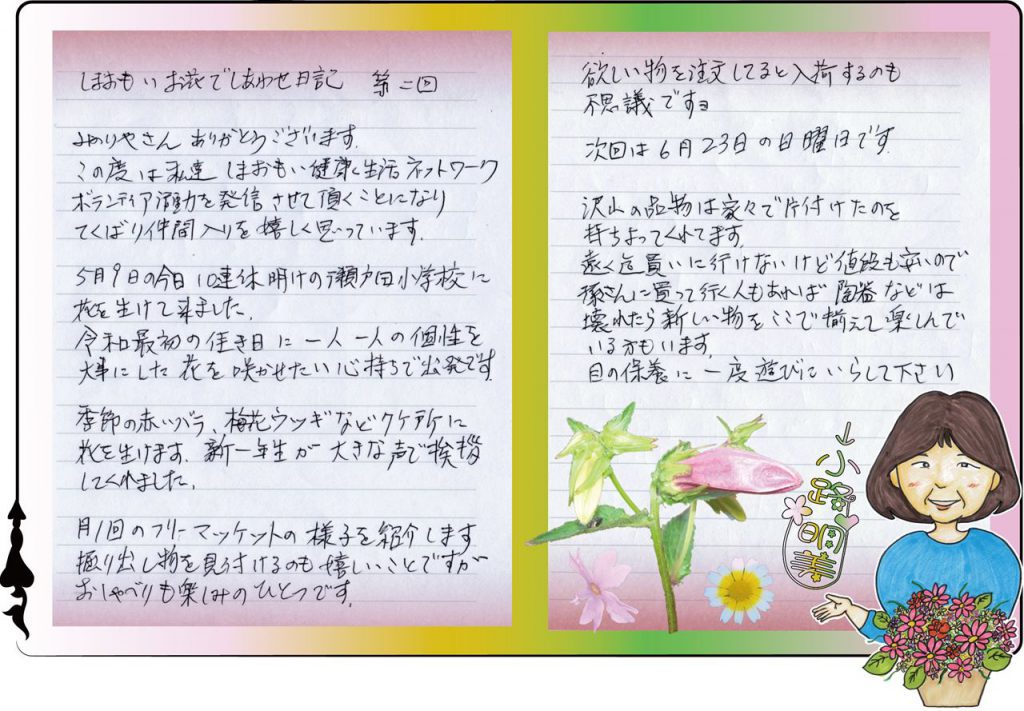 しまおもい お花でしあわせ日記 第二回
みのりやさん ありがとうございます。
この度は私達 しまおもい健康生活ネットワーク
ボランティア活動を発信させて頂くことになり
てくばり仲間入りを嬉しく思っています。
5月9日の今日 10連休明けの瀬戸田小学校に
花を生けて来ました。
令和最初の佳き日に 一人一人の個性を
大事にした 花を咲かせたい心持ちで出発です。
季節の赤いバラ、梅花ウツギなど 9ヶ所に
花を生けます。新一年生が 大きな声で挨拶
してくれました。
月1回のフリーマッケットの様子を紹介します
掘り出し物を見つけるのも嬉しいことですが
おしゃべりも楽しみのひとつです。
欲しい物を注文してると入荷するのも
不思議ですヨ
次回は6月23日の日曜日です。
沢山の品物は家々で片付けたのを
持ちよってくれてます。
遠く迄買いに行けないけど値段も安いので
孫さんに買って行く人もあれば 陶器などは
壊れたら新しい物をここで揃えて楽しんで
いる方もいます。
目の保養に一度遊びにいらして下さい
↓小路明美